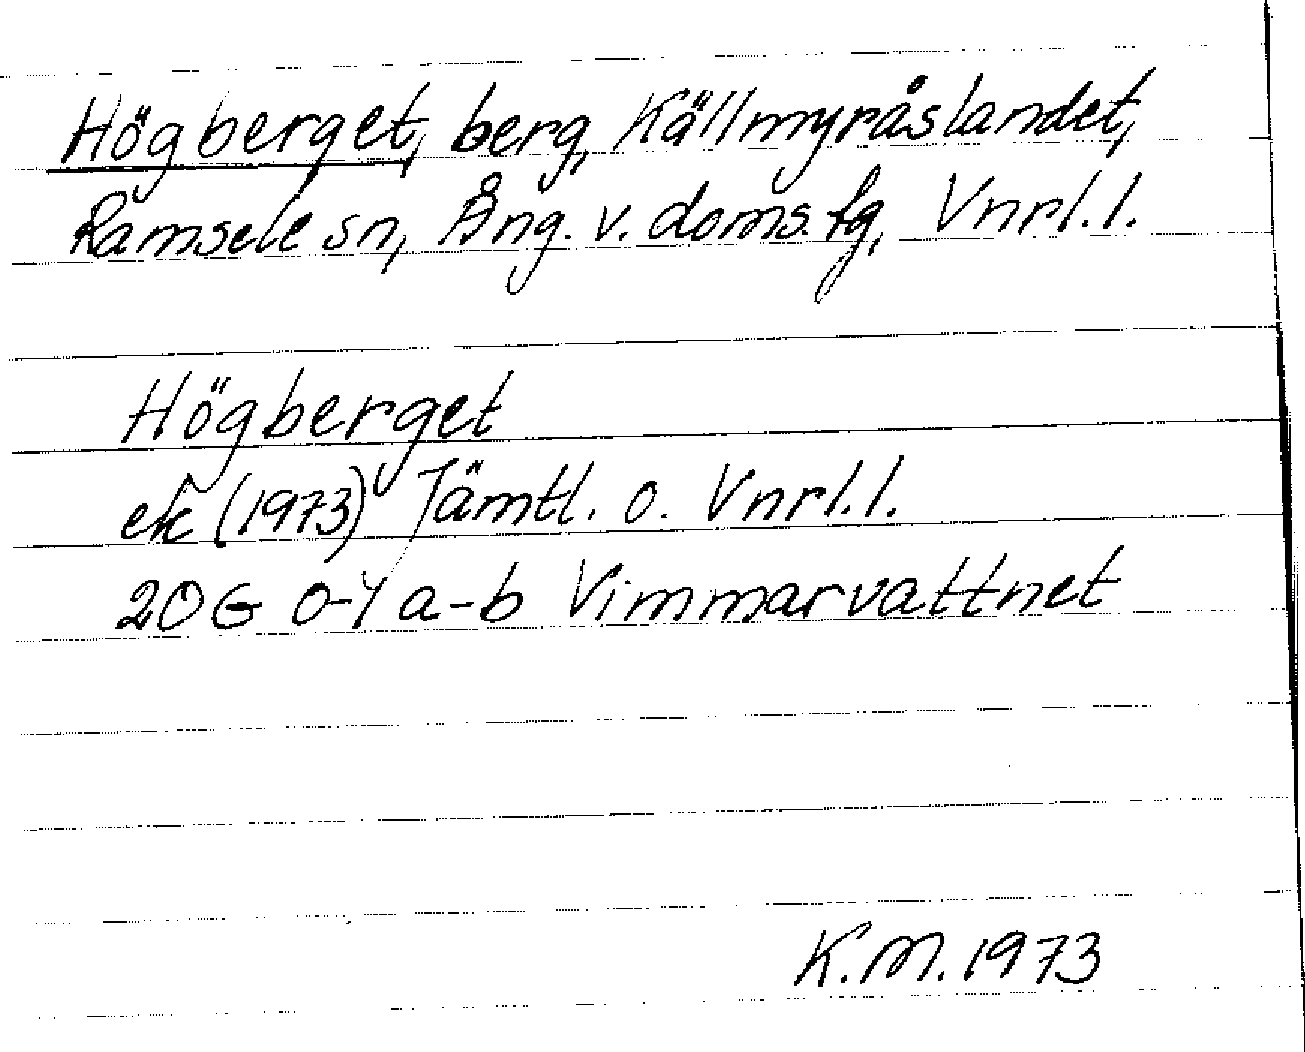 Högberget, berg, Källmyråslandet,
Ramsele sn, Ång. v. doms. fg, Vnrl. l.
Högberget
ek (1973) Jämtl. o. Vnrl. l.
20G 0-1 a-b Vimmarvattnet
K.M. 1973